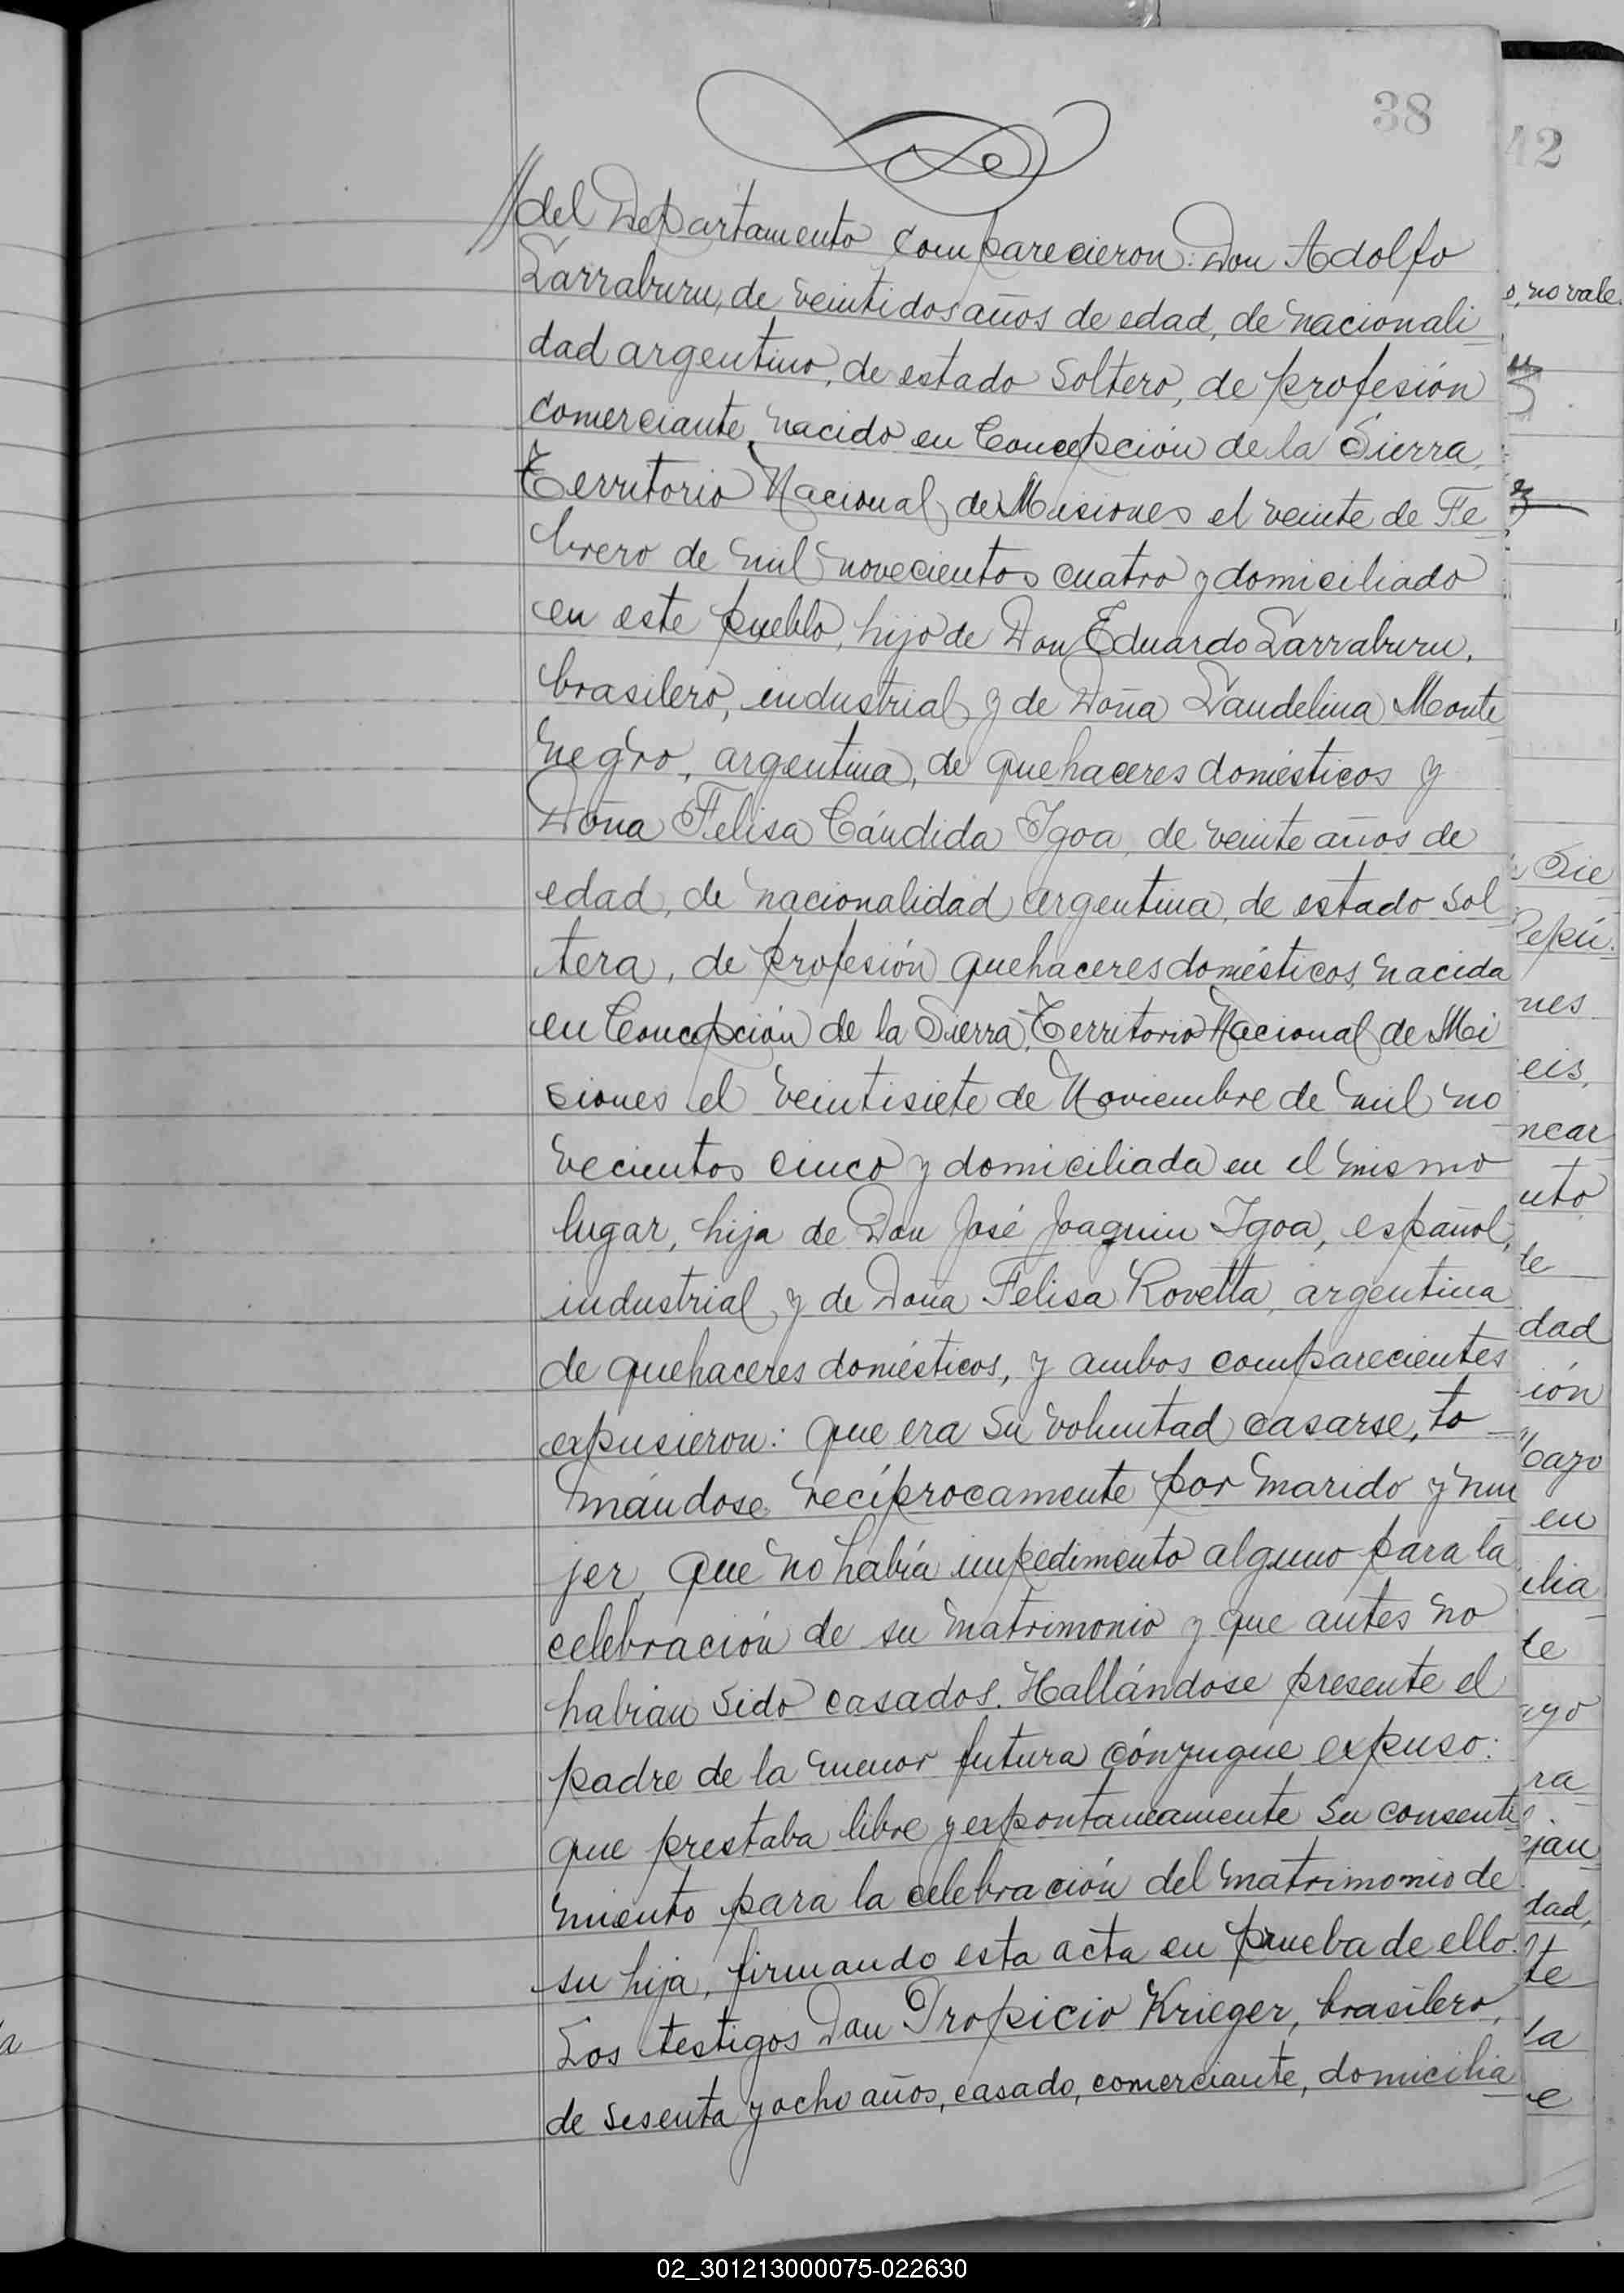 38
//del Departamento comparecieron: Don Adolfo
Larraburu, de veintidos años de edad, de nacionali
dad argentino, de estado soltero, de profesión
comerciante, nacido en Concepción de la Sierra,
Territorio Nacional de Misiones el veinte de Fe
brero de mil novecientos cuatro y domiciliado
en este pueblo, hijo de Don Eduardo Larraburu,
brasilero, industrial y de Doña Landelina Monte
negro, argentina, de quehaceres domésticos y
Doña Felisa Cándida Igoa, de veinte años de
edad, de nacionalidad argentina, de estado sol
tera, de profesión quehaceres domésticos, nacida
en Concepción de la Sierra, Territorio Nacional de Mi
siones el veintisiete de Noviembre de mil no
vecientos cinco y domiciliada en el mismo
lugar, hija de Don José Joaquin Igoa, español,
industrial y de Doña Felisa Rovetta, argentina
de quehaceres domésticos, y ambos comparecientes
expusieron: que era su voluntad casarse, to
mándose recíprocamente por marido y mu
jer, que no había impedimento alguno para la
celebración de su matrimonio y que antes no
habian sido casados. Hallándose presente el
padre de la menor futura cónyugue expuso:
que prestaba libre y expontaneamente su consenti
miento para la celebración del matrimonio de
su hija, firmando esta acta en prueba de ello.
Los testigos Don Propicio Krieger, brasilero,
de sesenta y ocho años, casado, comerciante, domicilia
42
o, no vale.
Sie
Repú
nes
eis,
ncar
uto
de
dad
ión
Mayo
en
ilia
te
ayo
ra
ejan
dad,
te
la
e
a
02_301213000075-022630